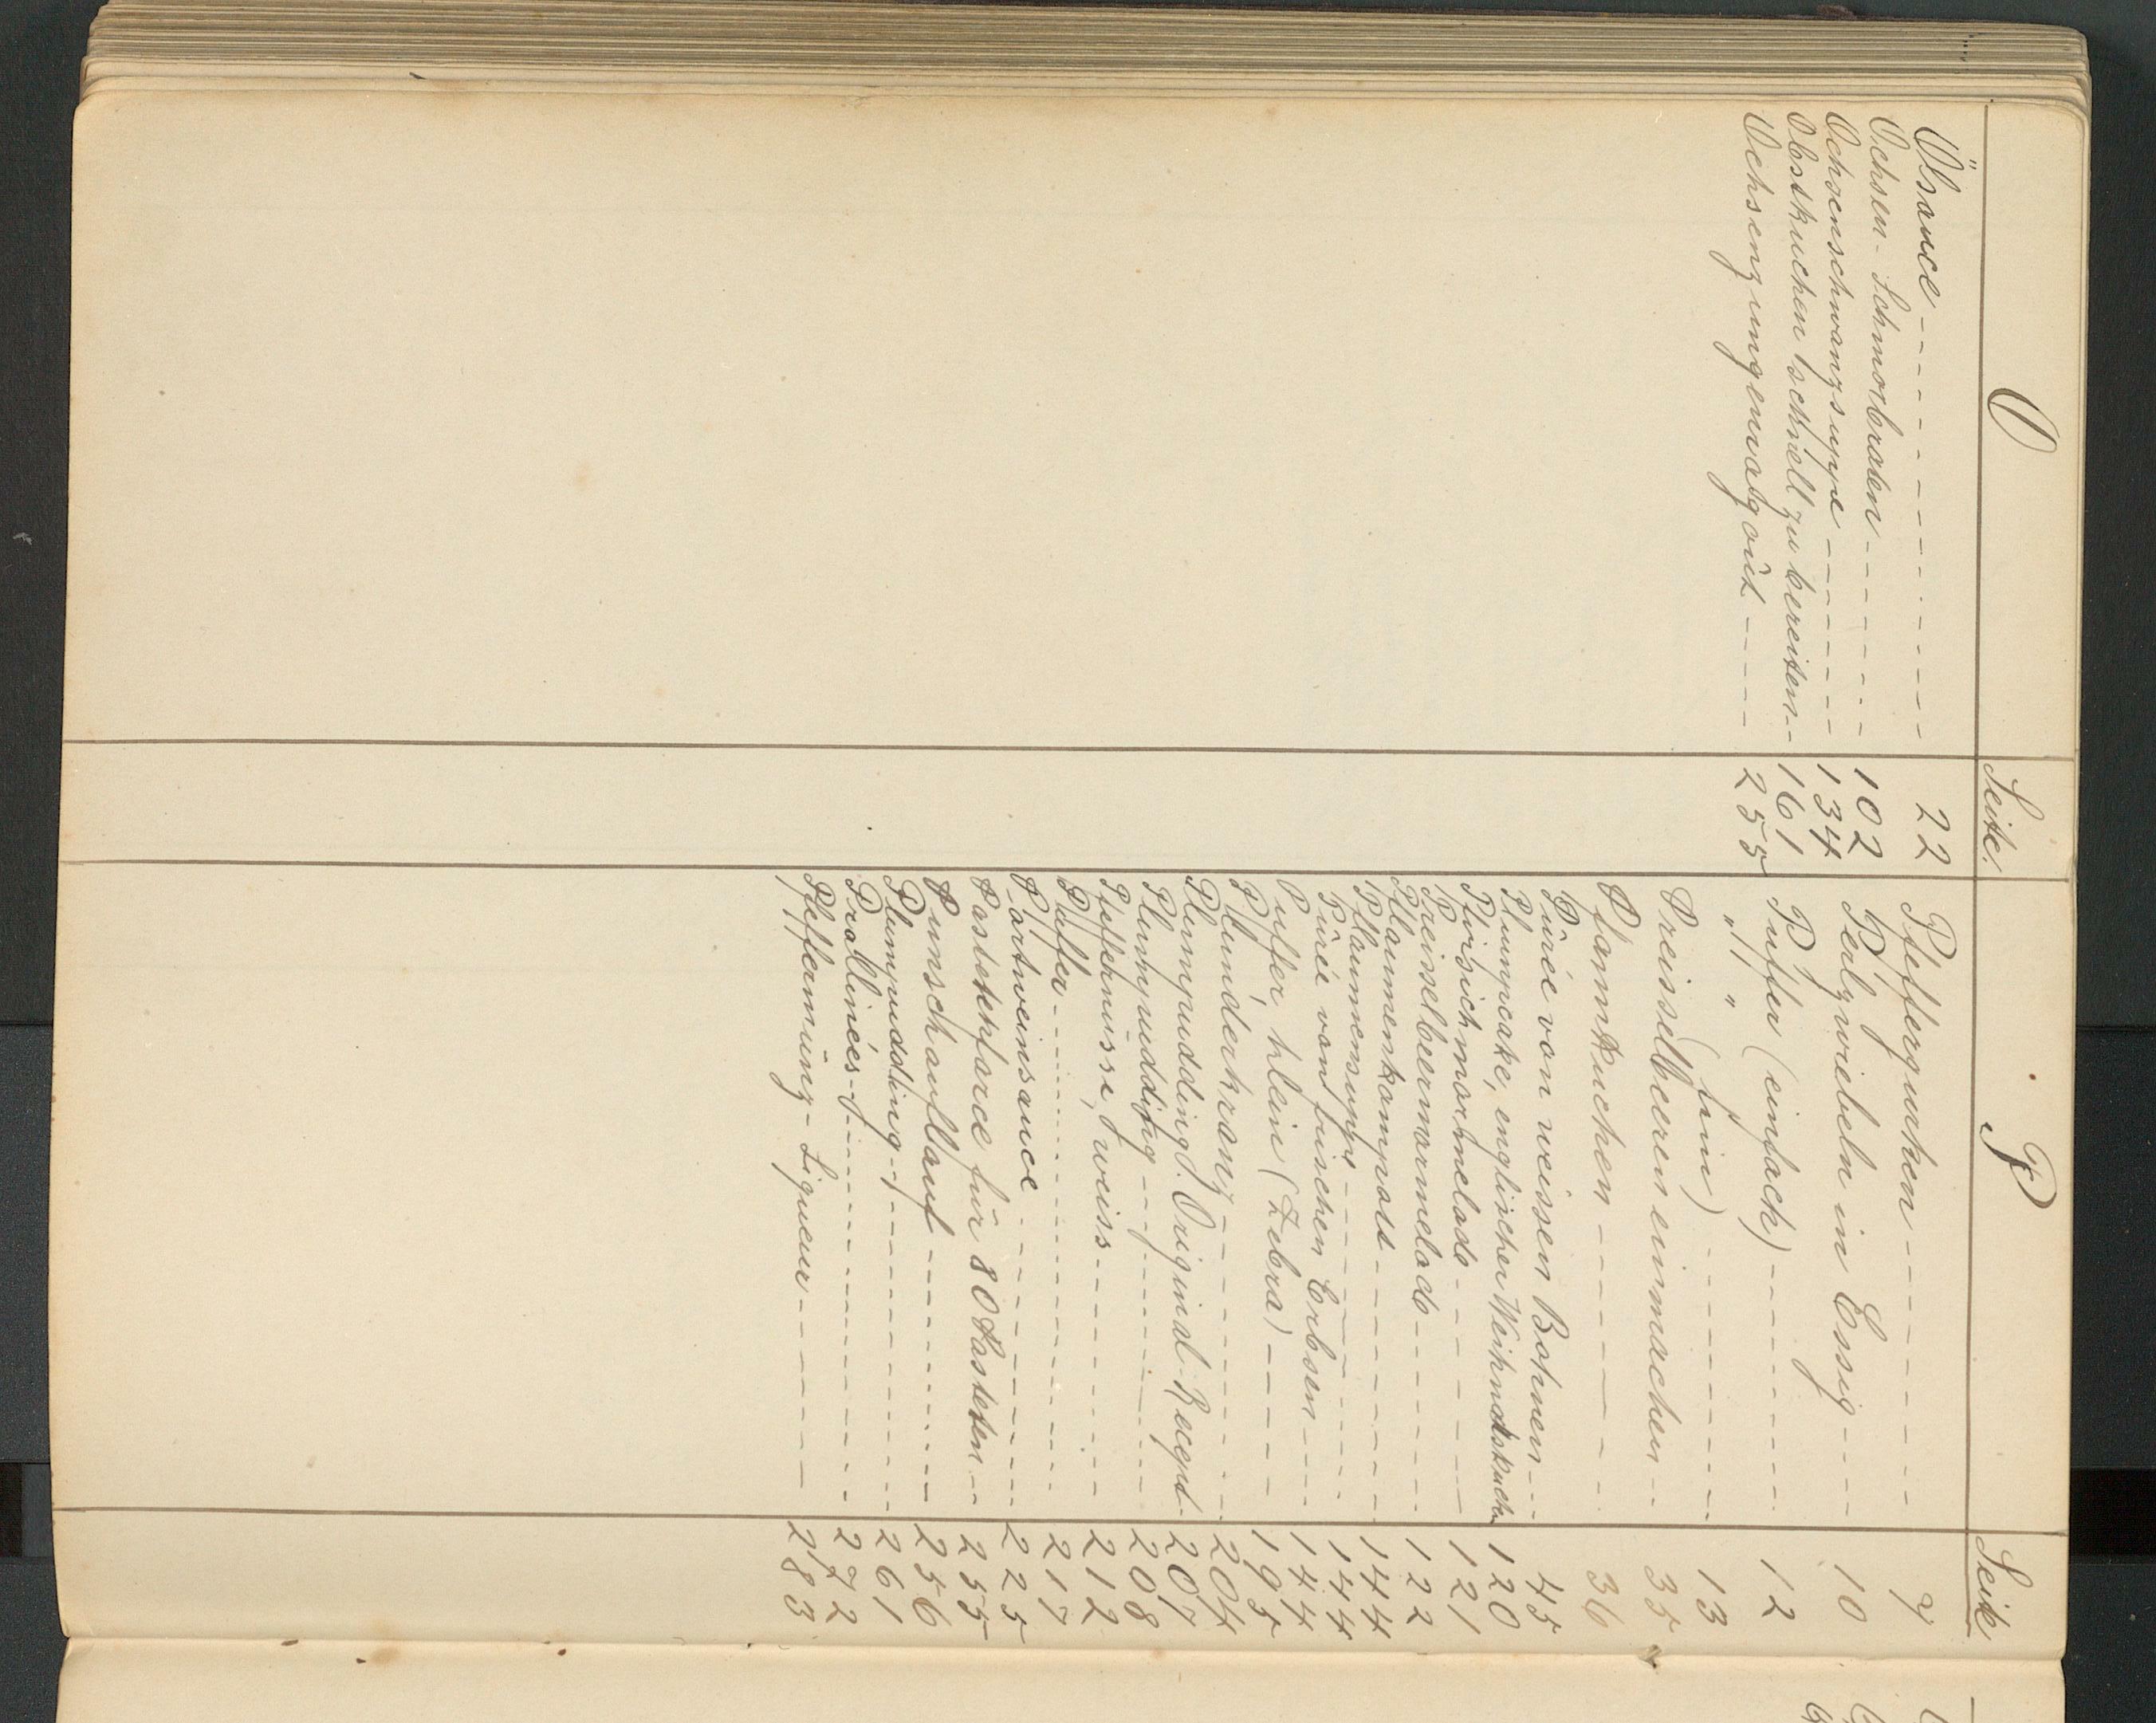 O Seite.
Ölsauce 22
Ochsen-Schmorbraten 102
Ochsenschwanzsuppe 134
Obstkuchen schnell zu bereiten 161
Ochsenzungenragoût 255
P Seite
Pfeffergurken 9
Perlzwiebeln in Essig 10
Puffer (einfach) 12
" " (fein) 13
Preisselbeeren einmachen 35
Pfannkuchen 36
Pürée von weissen Bohnen 45
Plumpcake, englischer Weihnachtskuchen 120
Pfirsichmarmelade 121
Preisselbeermarmelade 122
Pflaumenkompott 144
Pflaumensuppe 144
Pürée von frischen Erbsen 144
Puffer, klein (Zebra) 195
Plunderkranz 204
Plumpudding d. Original-Recept 207
Plumpudding 208
Pfeffernüsse, weiss 212
Puffer 217
Portweinsauce 225
Pastetenfarce für 80 Pasteten 255
Punschauflauf 256
Plumpudding 261
Prallinées 272
Pfefferminz-Liqueur 283